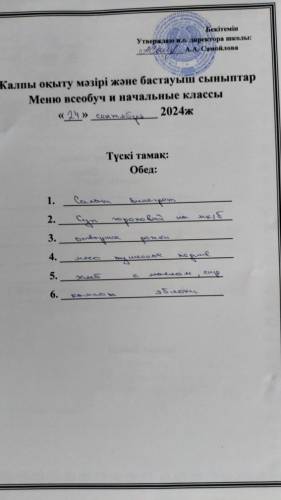 Бекітемін
Утверждаю и.о. директора школы:
А.А. Самойлова
Жалпы оқыту мәзірі және бастауыш сыныптар
Меню всеобуч и начальные классы
«24» сентября 2024ж
Түскі тамақ:
Обед:
1. Салат винегрет
2. Суп гороховый на мк/б
3.
4. мясо тушеное
5. хлеб с маслом, сыр
6. компот яблоки